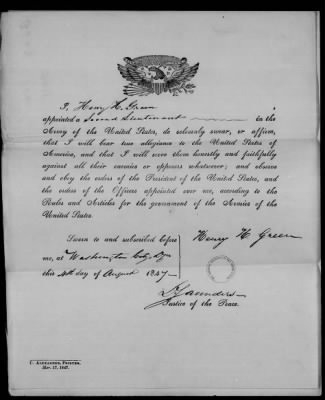 I, Henry H. Green
appointed a Second Lieutenant in the
Army of the United States, do solemnly swear, or affirm,
that I will bear true allegiance to the United States of
America, and that I will serve them honestly and faithfully
against all their enemies or opposers whatsoever; and observe
and obey the orders of the President of the United States, and
the orders of the Officers appointed over me, according to the
Rules and Articles for the government of the Armies of the
United States.
Henry H. Green
Sworn to and subscribed before
me, at Washington City, D.C.
this 4th day of August 1847
Saunders
Justice of the Peace.
C. Alexander, Printer,
Mar. 17, 1847.